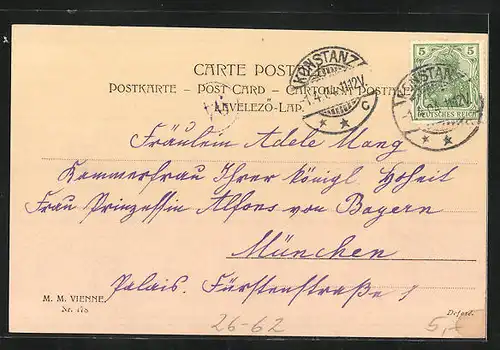 CARTE POSTALE
POSTKARTE – POST CARD – CARTOLINA POSTALE
LEVELEZŐ-LAP.
KONSTANZ
1.4.04.11-12V
C
5 5
DEUTSCHES REICH
KONSTANZ
11-12V
Fräulein Adele Mang
Kammerfrau Ihrer königl. Hoheit
Frau Prinzessin Alfons von Bayern
München
Palais. Fürstenstraße 1
M. M. VIENNE,
Nr. 178
26-62
5,-